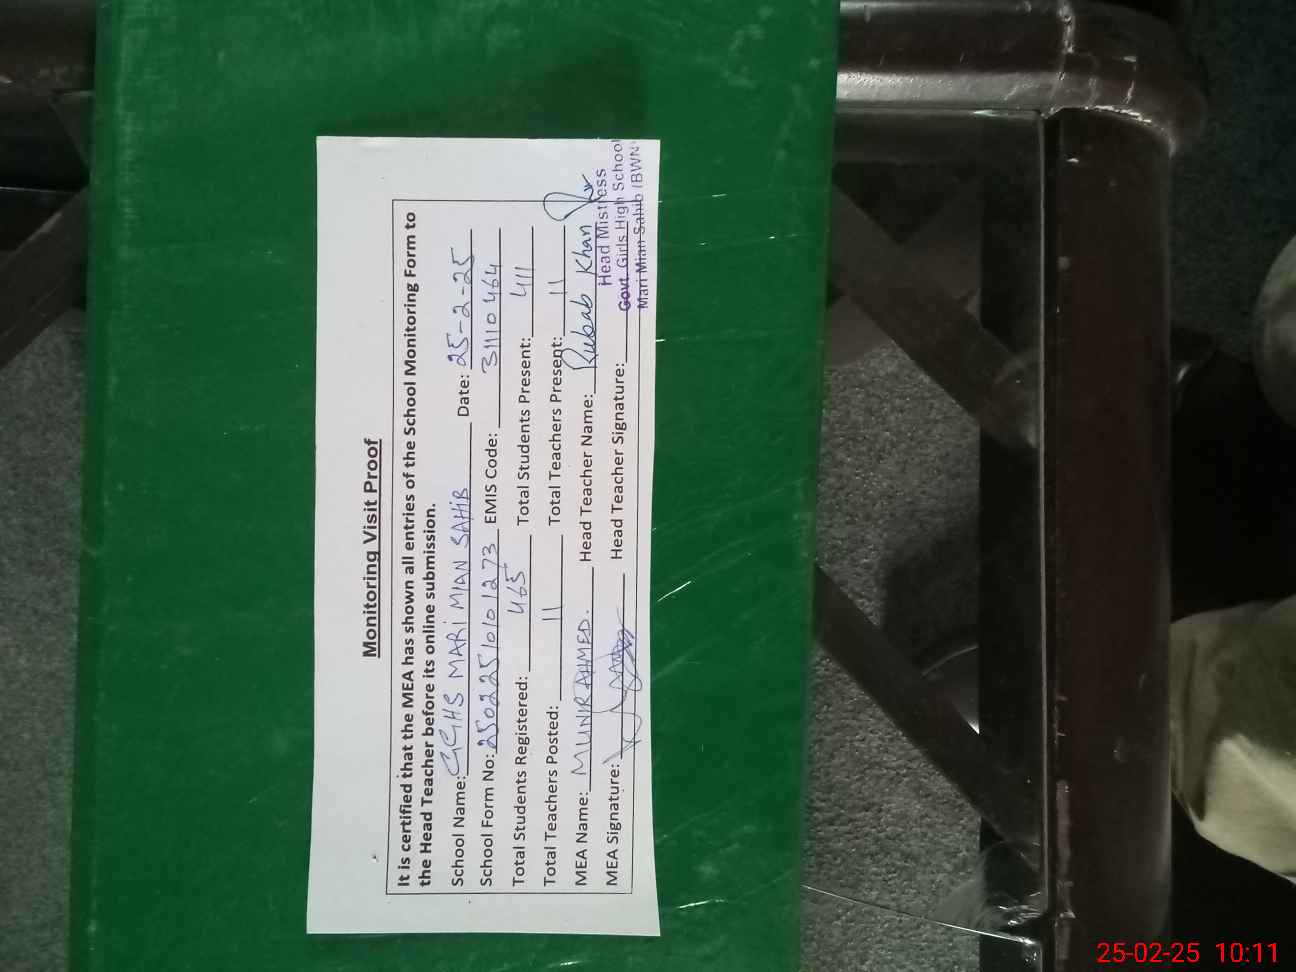 Monitoring Visit Proof
It is certified that the MEA has shown all entries of the School Monitoring Form to
the Head Teacher before its online submission.
School Name: GGHS MARI MIAN SAHIB Date: 25-2-25
School Form No: 25022510101273 EMIS Code: 31110464
Total Students Registered: 465 Total Students Present: 411
Total Teachers Posted: 11 Total Teachers Present: 11
MEA Name: MUNIR AHMED. Head Teacher Name: Rubab Khan
MEA Signature: Head Teacher Signature:
Head Mistress
Govt. Girls High School
Mari Mian Sahib (BWN)
25-02-25 10:11